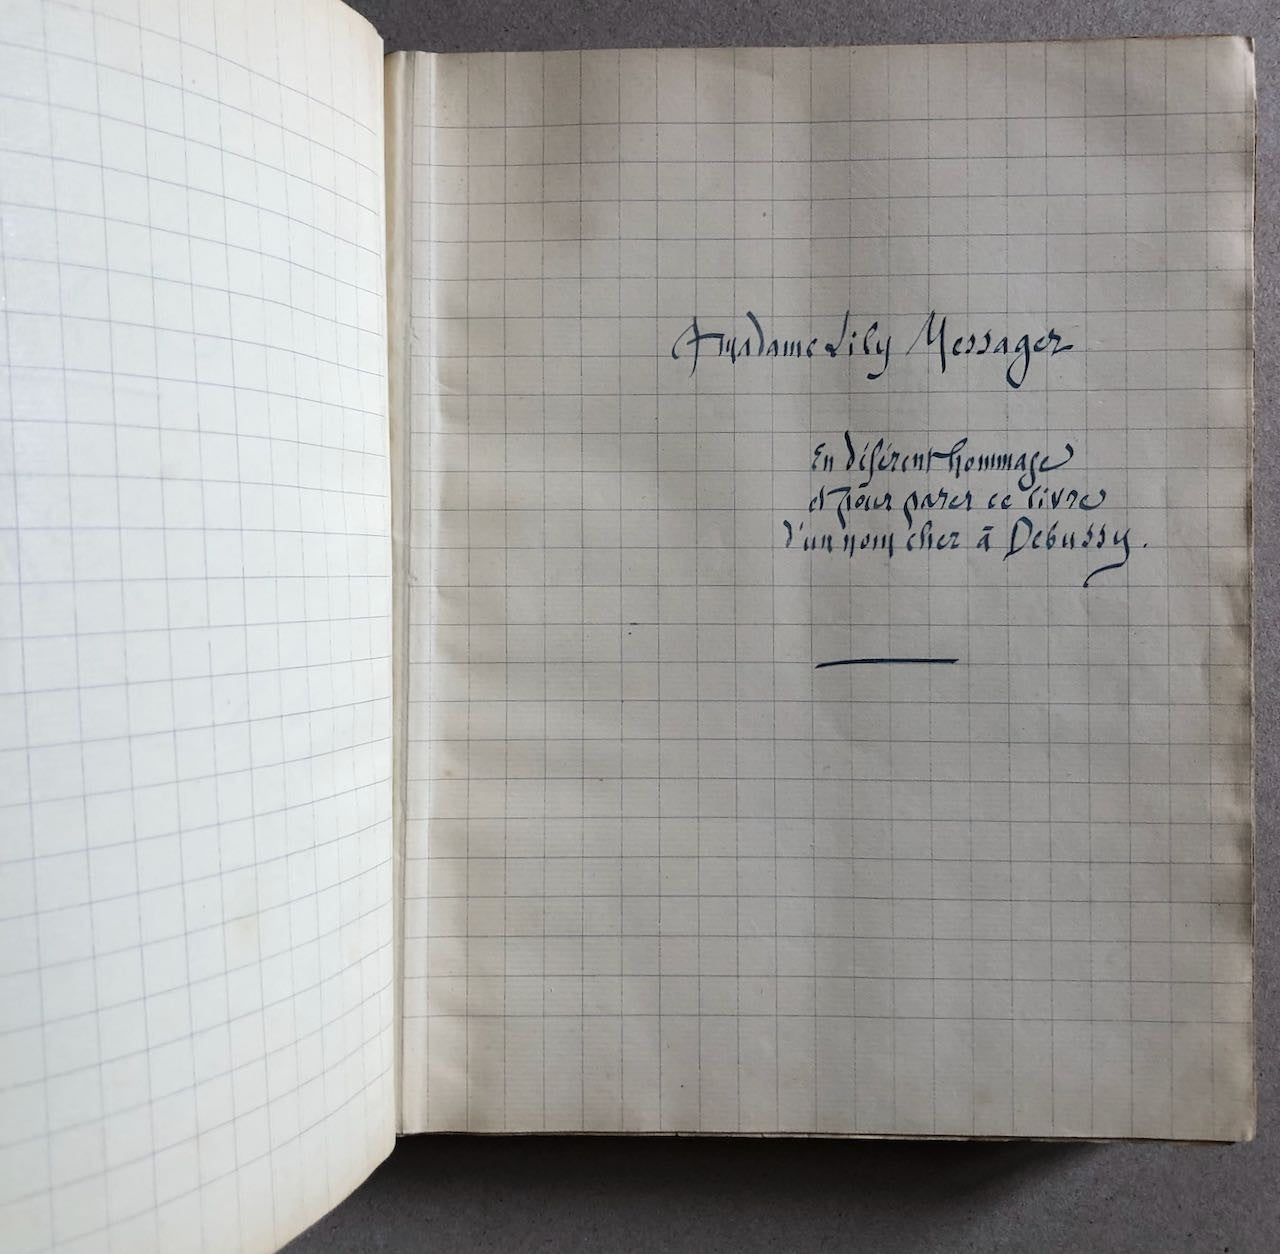 A madame Lily Messager
En déférent hommage
et pour parer ce livre
d'un nom cher à Debussy.